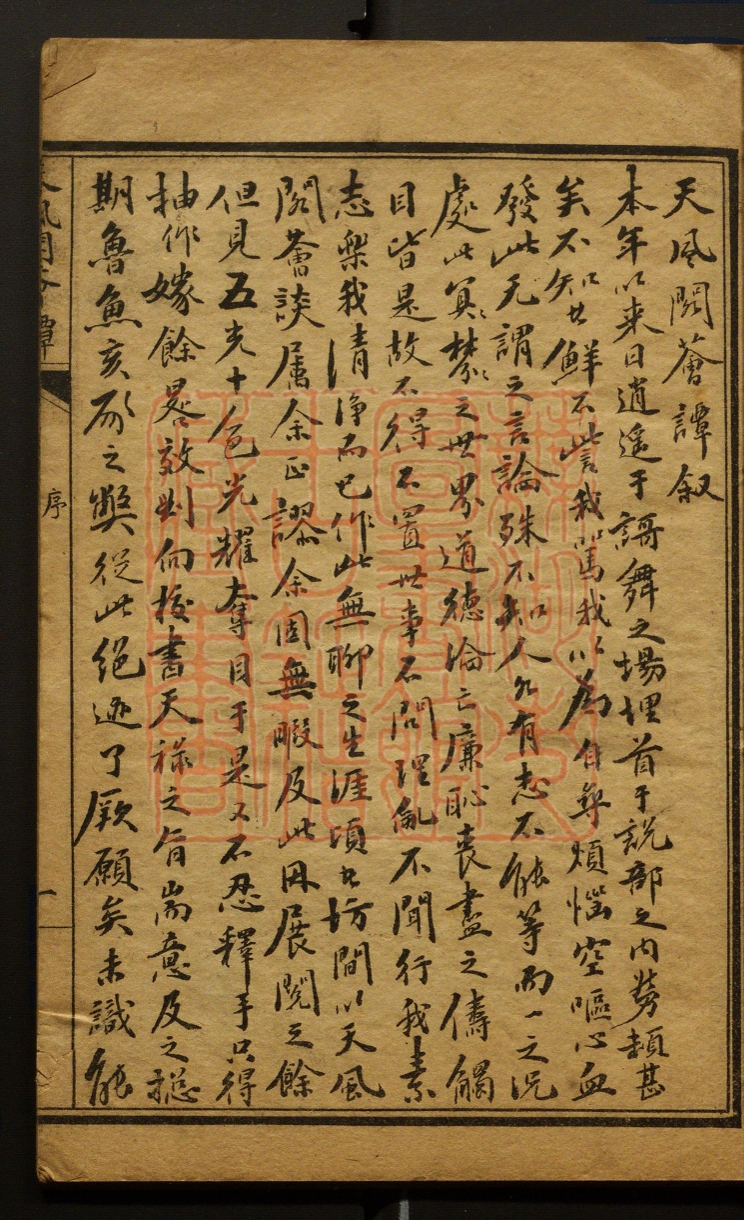 天風閣薈譚叙
本年以来日逍遥于謌舞之塲埋首于説部之内勞頼甚
矣不知者鮮不訾我罵我以為自尋煩惱空嘔心血
發此无謂之言論殊不知人各有志不能等而一之况
處此冥冥棼棼之世界道德淪亡廉恥喪盡之儔觸
目皆是故不得不置世事不問理亂不聞行我素
志樂我清淨而已作此無聊之生涯頃者坊間以天風
閣薈談属余正謬余固無暇及此因展閱之餘
但見五光十色光耀奪目于是又不忍釋手只得
抽作嫁餘晷效劉向校書天禄之旨耑意及之摠
期魯魚亥豕之獘從此絕迹了厥願矣未識能
天風閣薈譚
序
一